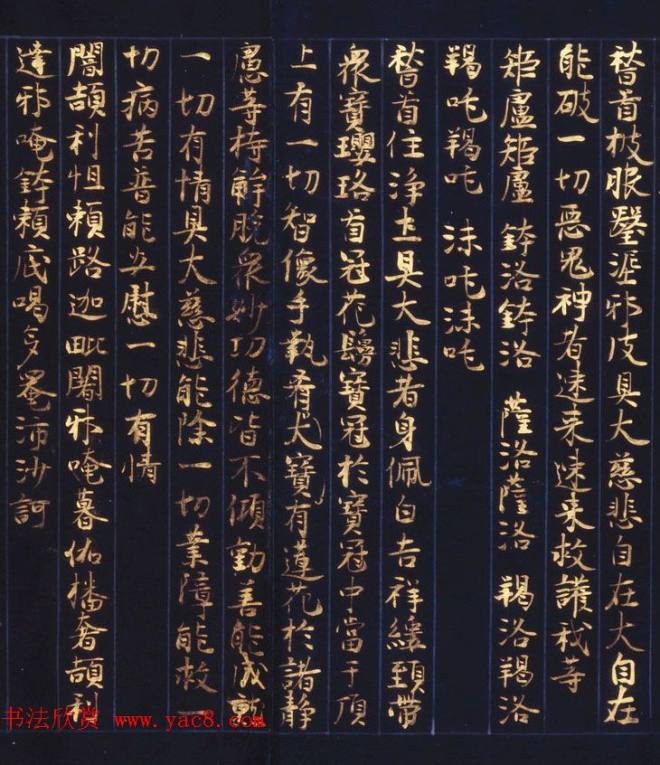 稽首枝服墾涯邪皮具大慈悲自在大自在
能破一切惡鬼神者速来速来救護我等
矩盧矩盧 鉢洛鉢洛 薩洛薩洛 羯洛羯洛
羯吒羯吒 沫吒沫吒
稽首住淨土具大悲者身佩白吉祥緩頸帶
衆寶瓔珞首冠花鬘寶冠於寶冠中當于頂
上有一切智像手執大寶有蓮花於諸靜
慮等持解脫衆妙功德皆不傾動善能成熟
一切有情具大慈悲能除一切業障能救一
切病苦普能安慰一切有情
闇頡利怛賴路迦毗闍邪唵暮伽播奢頡利
達邪唵鉢賴底喝多菴沛沙訶
书法欣赏 www.yac8.com